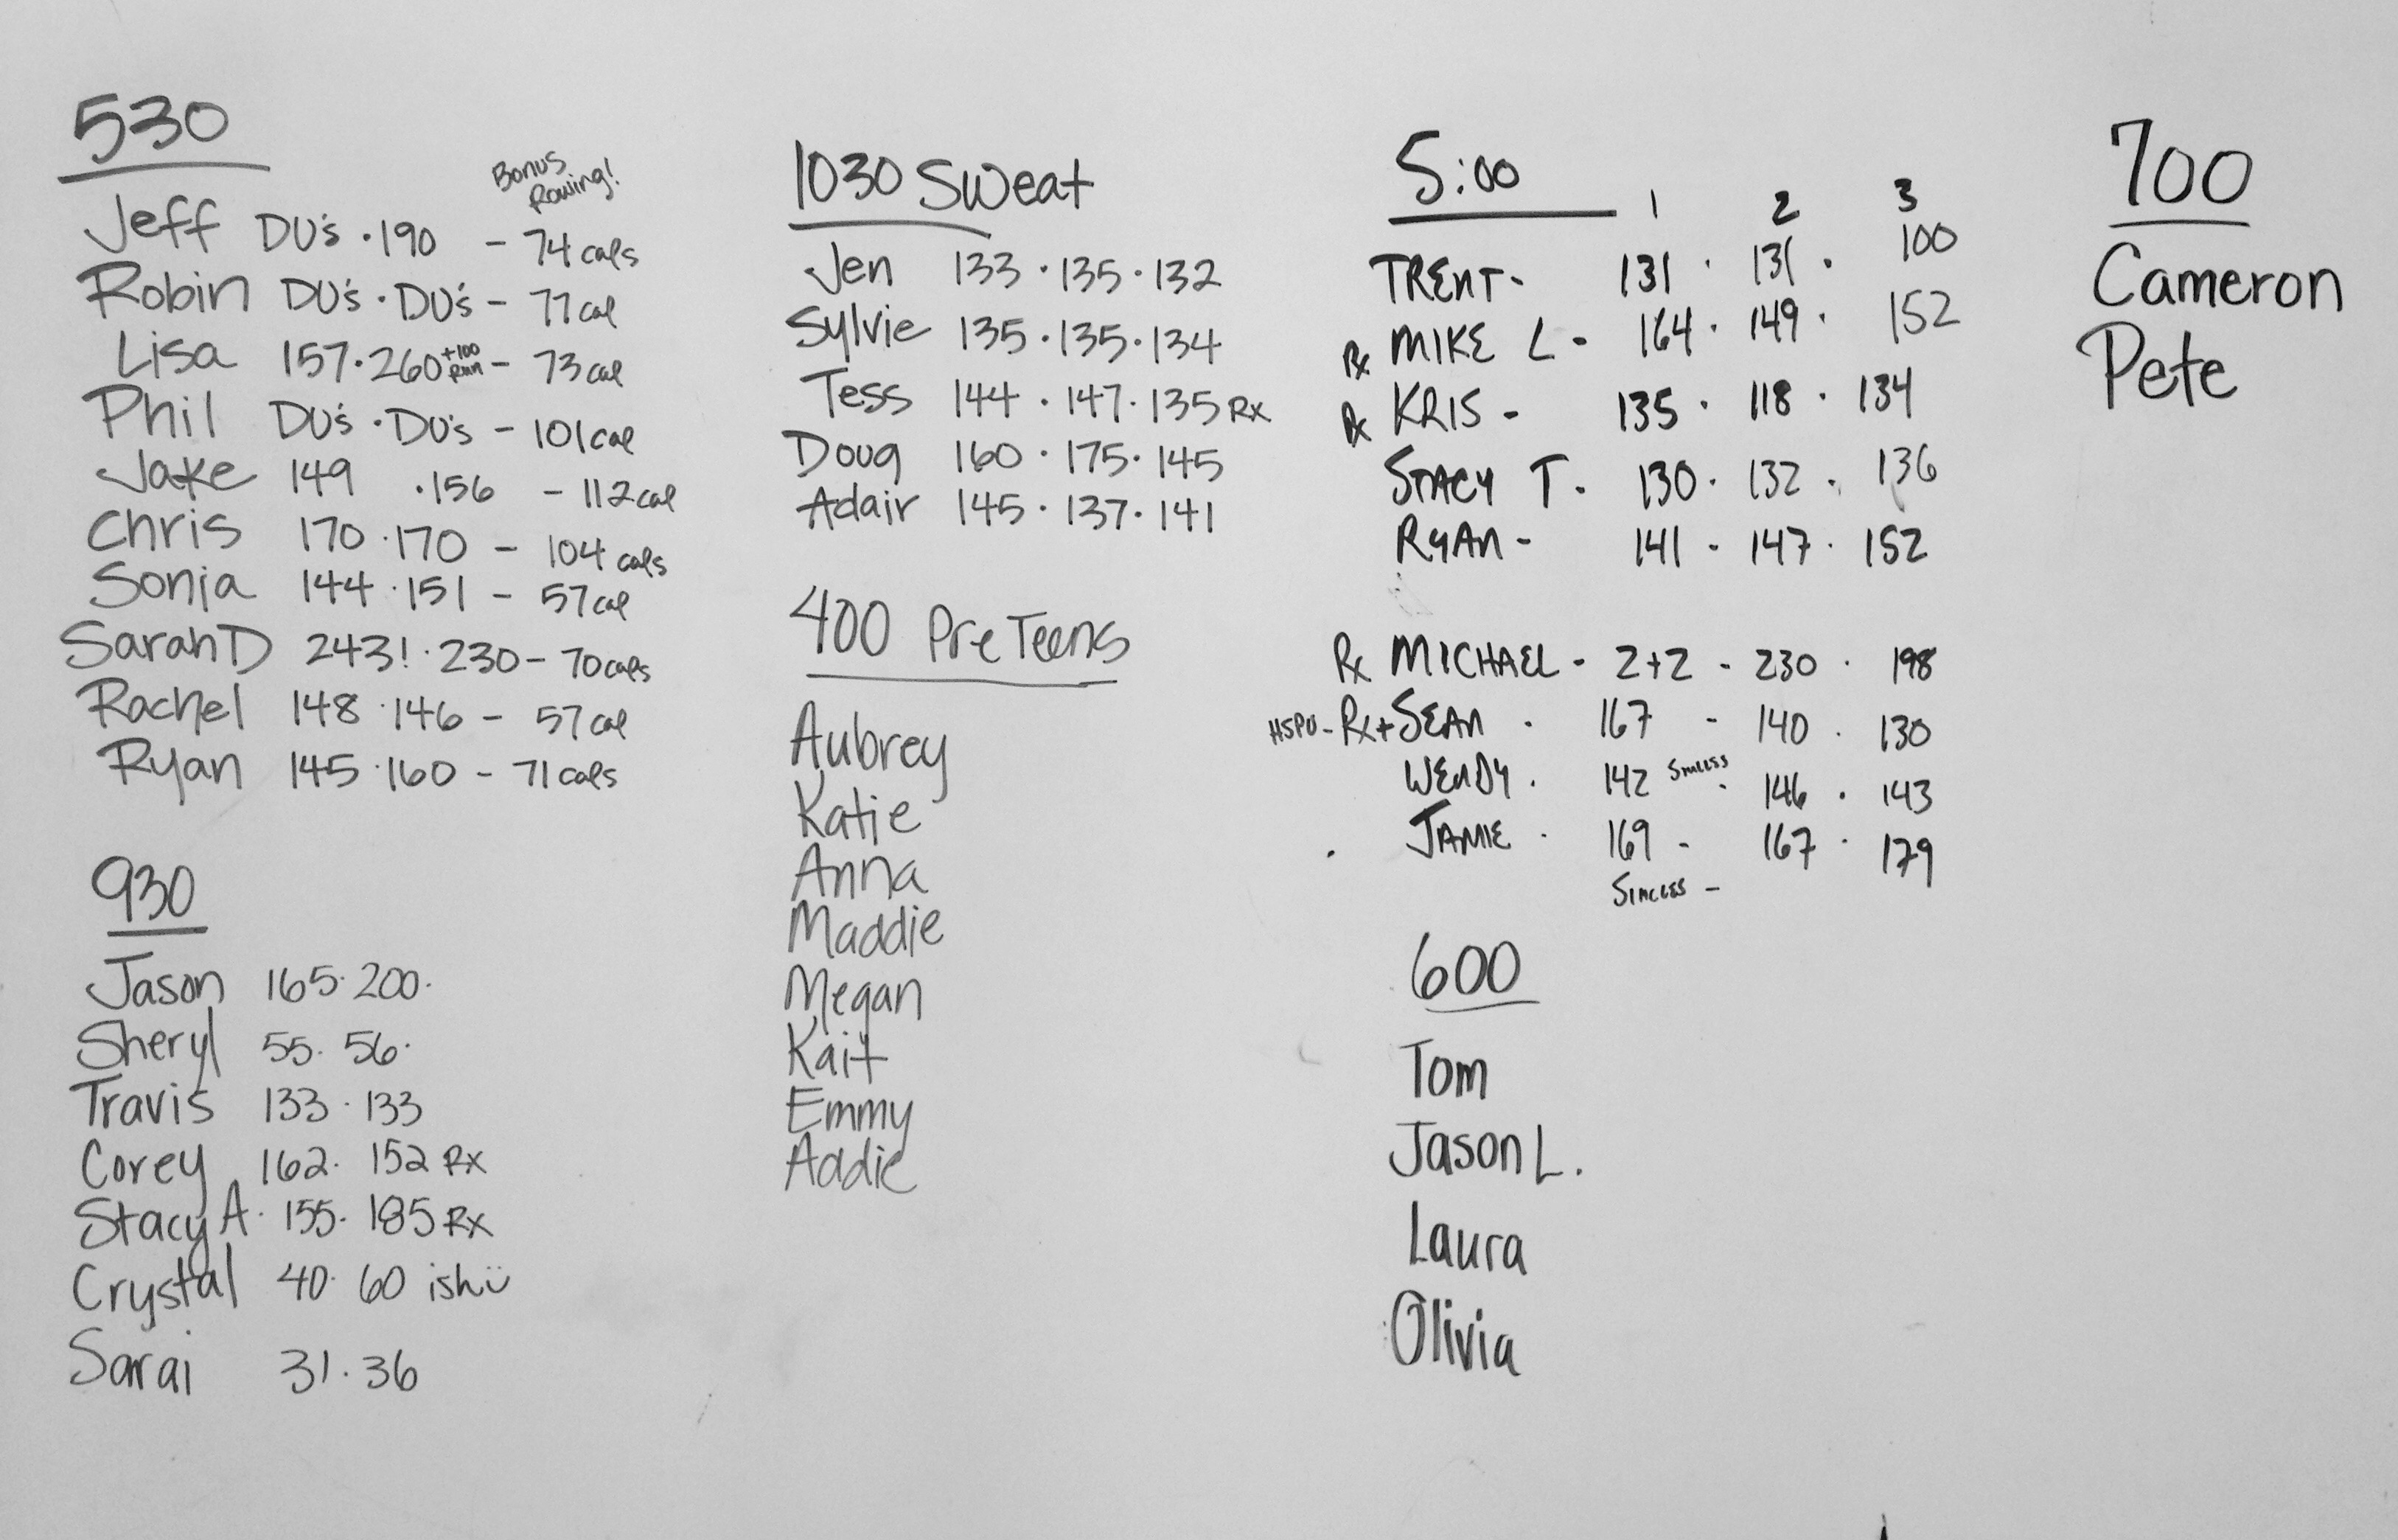 530
Bonus
Rowing!
Jeff DU's · 190 - 74 cals
Robin DU's · DU's - 77 cal
Lisa 157 · 260 +100 Run - 73 cal
Phil DU's · DU's - 101 cal
Jake 149 · 156 - 112 cal
Chris 170 · 170 - 104 cals
Sonja 144 · 151 - 57 cal
Sarah D 243! · 230 - 70 cals
Rachel 148 · 146 - 57 cal
Ryan 145 · 160 - 71 cals
930
Jason 165 · 200 ·
Sheryl 55 · 56 ·
Travis 133 · 133
Corey 162 · 152 Rx
Stacy A · 155 · 185 Rx
Crystal 40 · 60 ish ü
Sarai 31 · 36
1030 Sweat
Jen 133 · 135 · 132
Sylvie 135 · 135 · 134
Tess 144 · 147 · 135 Rx
Doug 160 · 175 · 145
Adair 145 · 137 · 141
400 Pre Teens
Aubrey
Katie
Anna
Maddie
Megan
Kait
Emmy
Addie
5:00 1 2 3
TRENT - 131 · 131 · 100
Rx MIKE L - 164 · 149 · 152
Rx KRIS - 135 · 118 · 134
STACY T - 130 · 132 · 136
RYAN - 141 - 147 · 152
Rx MICHAEL - 2+2 - 230 · 198
HSPU - Rx+ SEAN · 167 - 140 · 130
WENDY · 142 · 146 · 143
JAMIE · 169 - 167 · 179
600
Tom
Jason L.
Laura
Olivia
700
Cameron
Pete